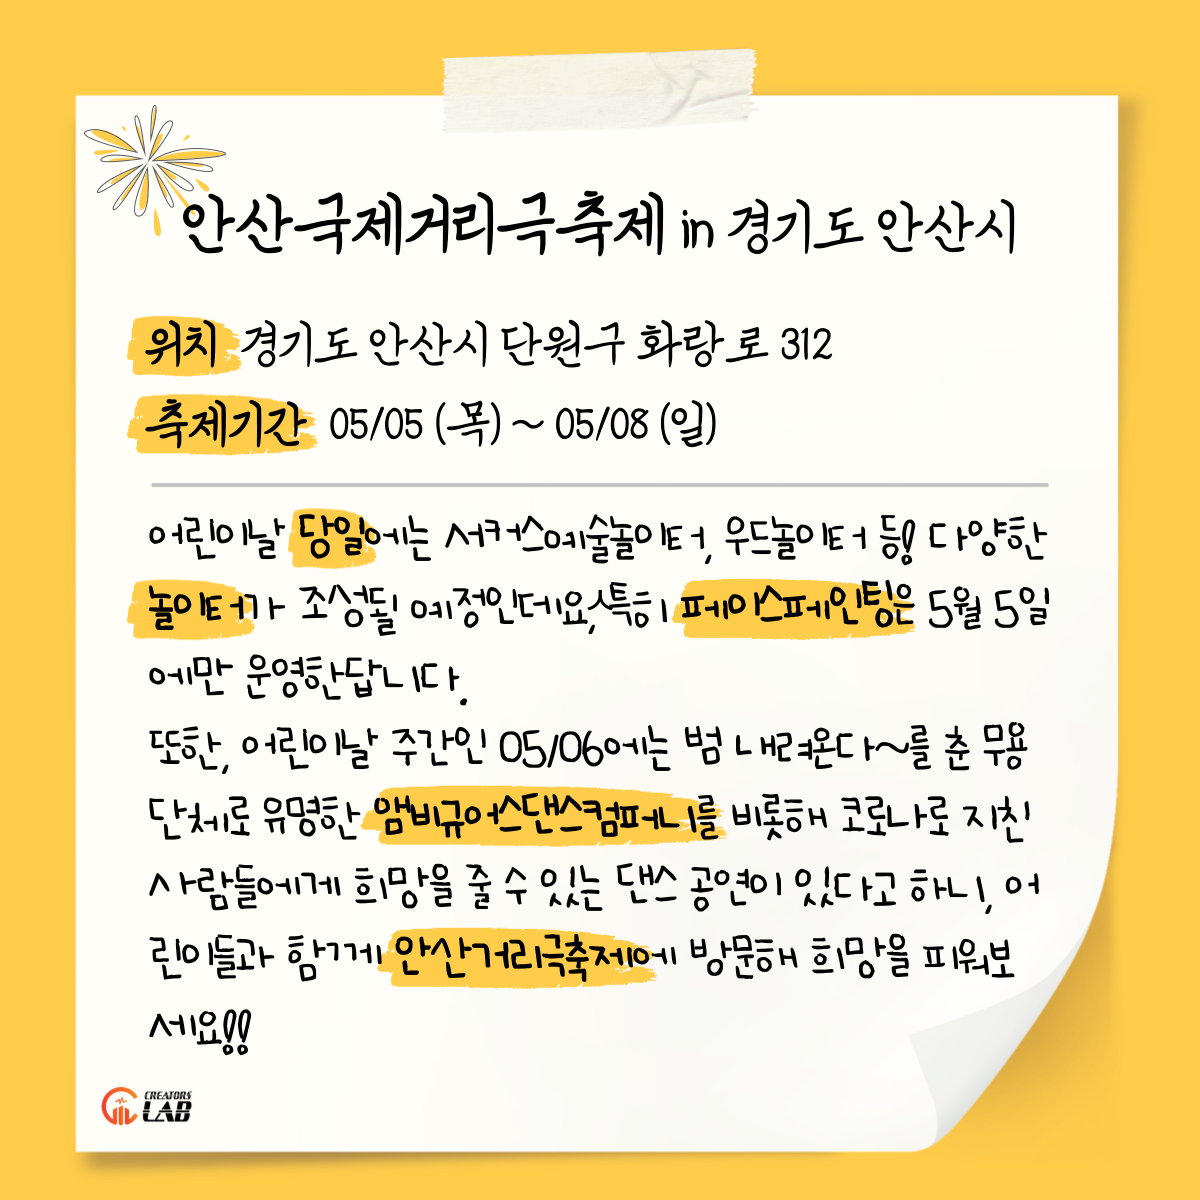 안산국제거리극축제 in 경기도 안산시
위치 경기도 안산시 단원구 화랑로 312
축제기간 05/05 (목) ~ 05/08 (일)
어린이날 당일에는 서커스예술놀이터, 우드놀이터 등! 다양한
놀이터가 조성될 예정인데요, 특히 페이스페인팅은 5월 5일
에만 운영한답니다.
또한, 어린이날 주간인 05/06에는 범 내려온다~를 춘 무용
단체로 유명한 앰비규어스댄스컴퍼니를 비롯해 코로나로 지친
사람들에게 희망을 줄 수 있는 댄스 공연이 있다고 하니, 어
린이들과 함께 안산거리극축제에 방문해 희망을 피워보
세요!!
CREATORS
LAB